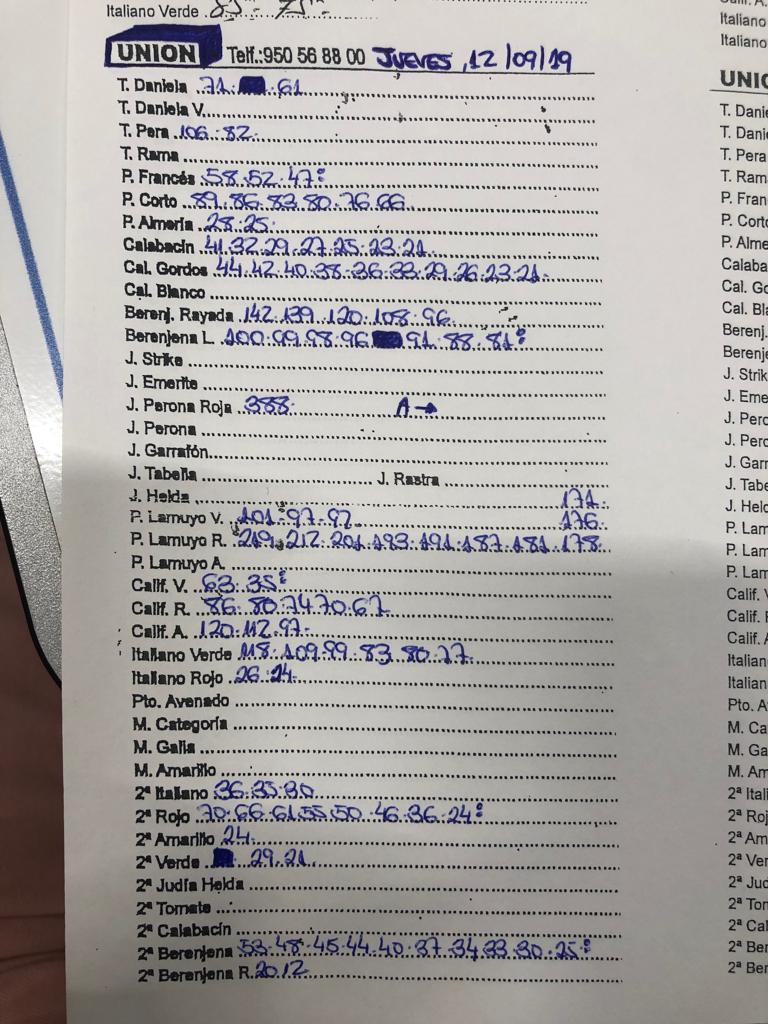 Italiano Verde . 83 - 75
UNION Telf.:950 56 88 00 JUEVES, 12/09/19
T. Daniela 71. 61
T. Daniela V.
T. Pera 106. 82.
T. Rama
P. Francés 58.52.47º
P. Corto 89.86.83.80.76.66
P. Almería 28.25.
Calabacín 41.32.29.27.25.23.21.
Cal. Gordos 44.42.40.38.36.33.29.26.23.21.
Cal. Blanco
Berenj. Rayada 142.139.120.108.96.
Berenjena L. 100.99.98.96 91.88.81º
J. Strike
J. Emerite
J. Perona Roja 388. A→
J. Perona
J. Garrafón
J. Tabella J. Rastra
J. Helda 171.
P. Lamuyo V. 101.97.92. 176.
P. Lamuyo R. 219.212.201.193.191.187.181.178.
P. Lamuyo A.
Calif. V. 63.35º
Calif. R. 86.80.74.70.67
Calif. A. 120.112.97.
Italiano Verde 118.109.99.83.80.77
Italiano Rojo 26.24.
Pto. Avenado
M. Categoría
M. Galia
M. Amarillo
2ª Italiano 36.35.30
2ª Rojo 70.66.61.55.50.46.36.24º
2ª Amarillo 24.
2ª Verde 29.21.
2ª Judía Helda
2ª Tomate
2ª Calabacín
2ª Berenjena 53.48.45.44.40.37.34.33.30.25º
2ª Berenjena R. 20.12.
Italiano
Italiano
UNIO
T. Danie
T. Danie
T. Pera
T. Ram
P. Fran
P. Corto
P. Alme
Calaba
Cal. Go
Cal. Bla
Berenj.
Berenje
J. Strik
J. Eme
J. Perc
J. Perc
J. Garr
J. Tabe
J. Held
P. Lam
P. Lam
P. Lam
Calif. V
Calif. F
Calif. A
Italian
Italian
Pto. A
M. Ca
M. Ga
M. Am
2ª Ital
2ª Roj
2ª Am
2ª Ver
2ª Jud
2ª Ton
2ª Cal
2ª Ber
2ª Ber